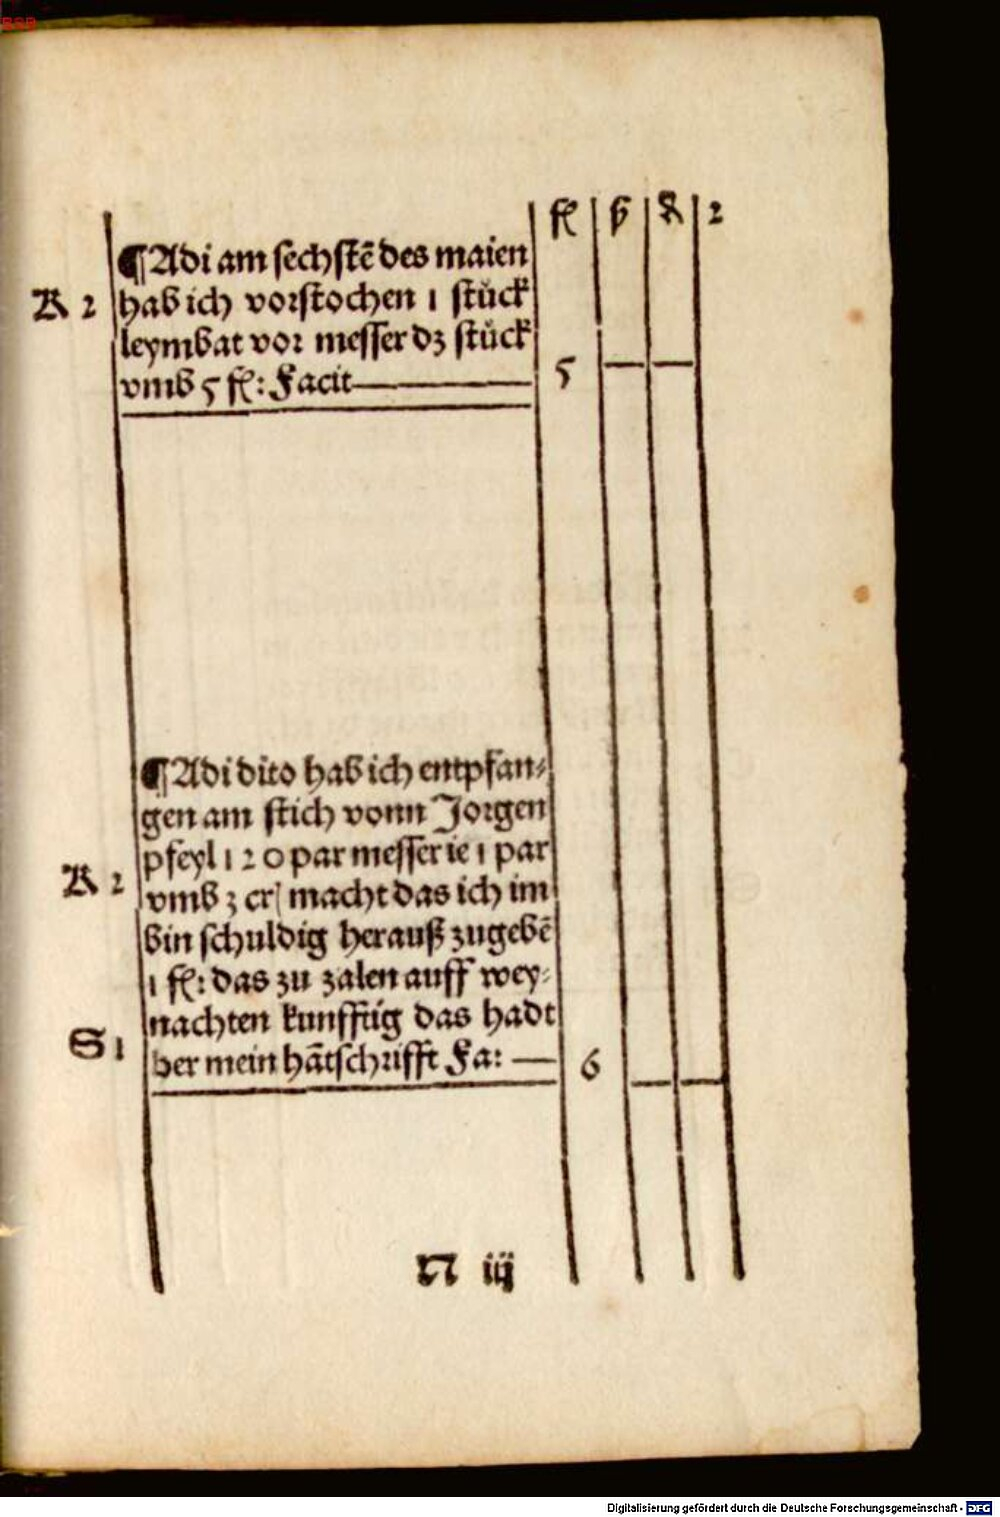 fl ß ₰ 2
¶Adi am sechstē des maien
K 2 hab ich vorstochen 1 stůck
leymbat vor messer dʒ stůck
vmb 5 fl: Facit 5 — —
¶Adi dito hab ich entpfan⸗
gen am stich vonn Jorgen
pfeyl 120 par messer ie 1 par
K 2 vmb 3 cr macht das ich im
bin schuldig herauß zugebē
1 fl: das zu zalen auff wey⸗
nachten kunfftig das hadt
S 1 her mein hātschrifft Fa: — 6 — —
N iij
Digitalisierung gefördert durch die Deutsche Forschungsgemeinschaft - DFG
BSB